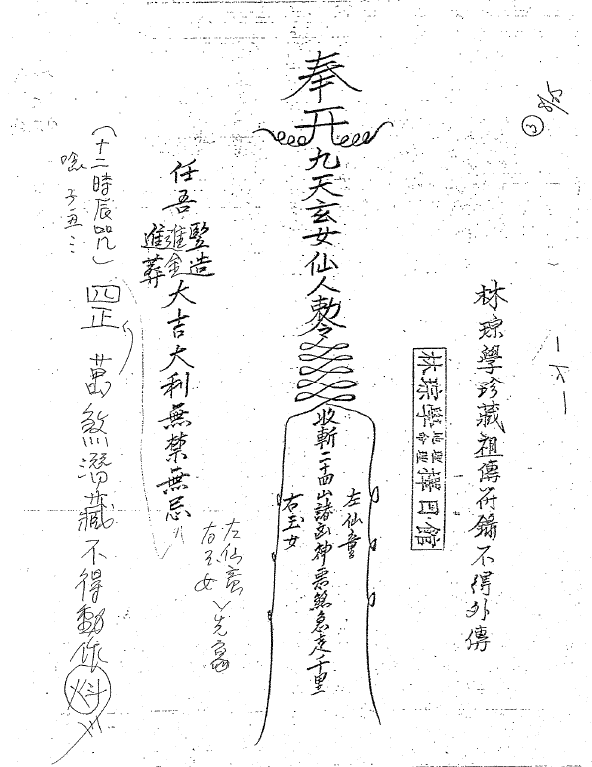 林琮學珍藏祖傳符錄不得外傳
林琮學地理命理擇日館
奉
九天玄女仙人勅令
左仙童
收斬二十四山諸凶神惡煞急走千里
右玉女
任吾
豎造
進金
進葬
大吉大利無禁無忌
左仙童
右玉女
四正
萬煞潛藏不得動作
(十二時辰咒)
唸子丑⋮